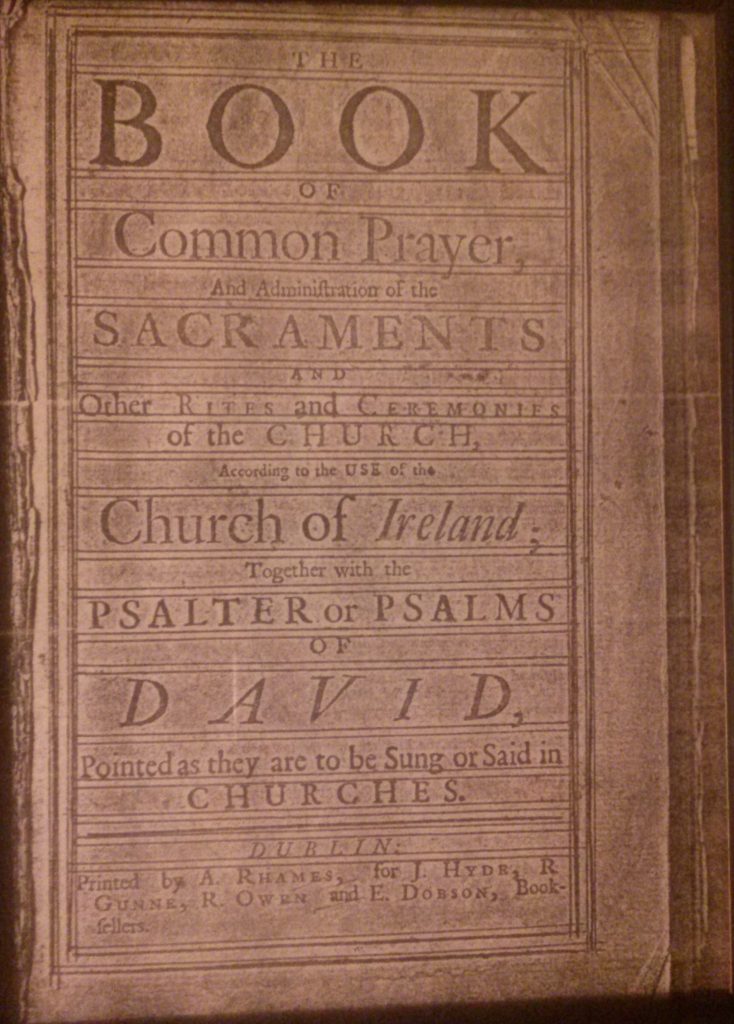 THE
BOOK
OF
Common Prayer,
And Adminiſtration of the
SACRAMENTS
AND
Other RITES and CEREMONIES
of the CHURCH,
According to the USE of the
Church of Ireland;
Together with the
PSALTER or PSALMS
OF
DAVID,
Pointed as they are to be Sung or Said in
CHURCHES.
DUBLIN:
Printed by A. RHAMES, for J. HYDE, R.
GUNNE, R. OWEN and E. DOBSON, Book-
ſellers.